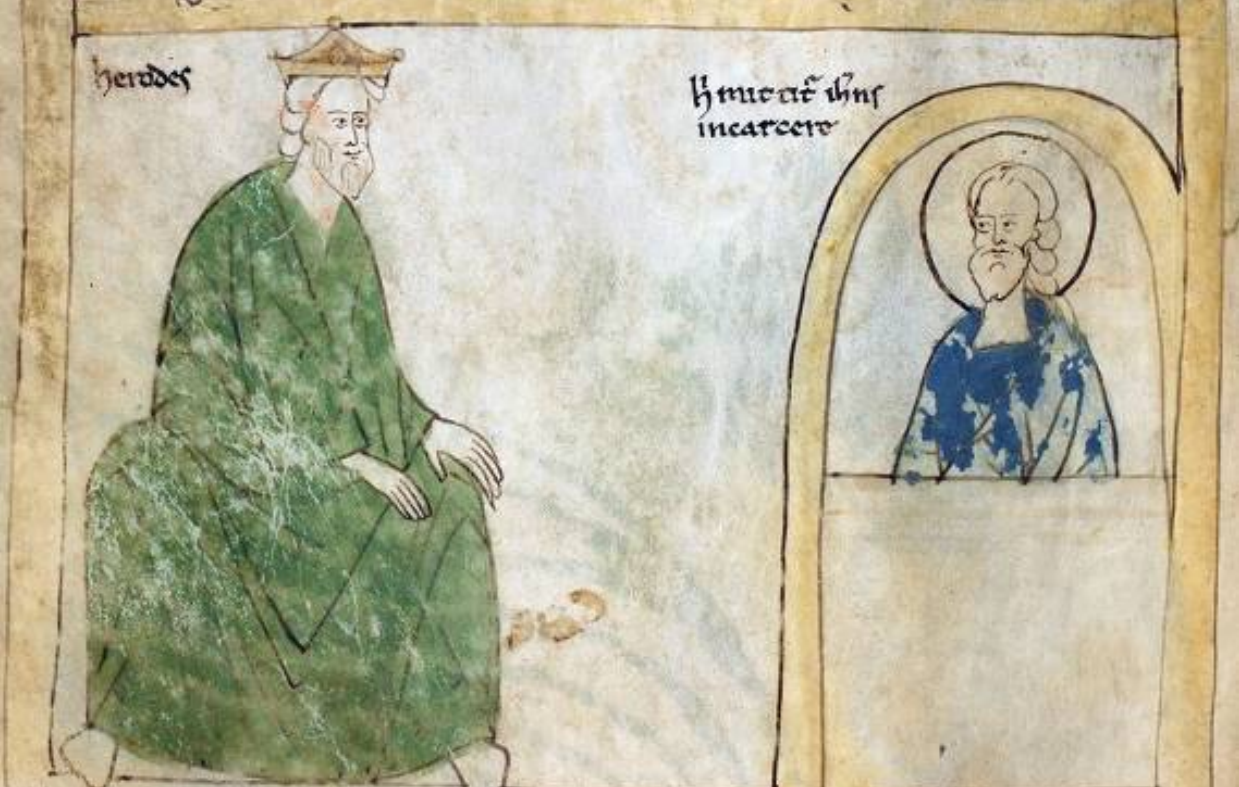 herodes
ħ mittit̃ iħns
incarcere